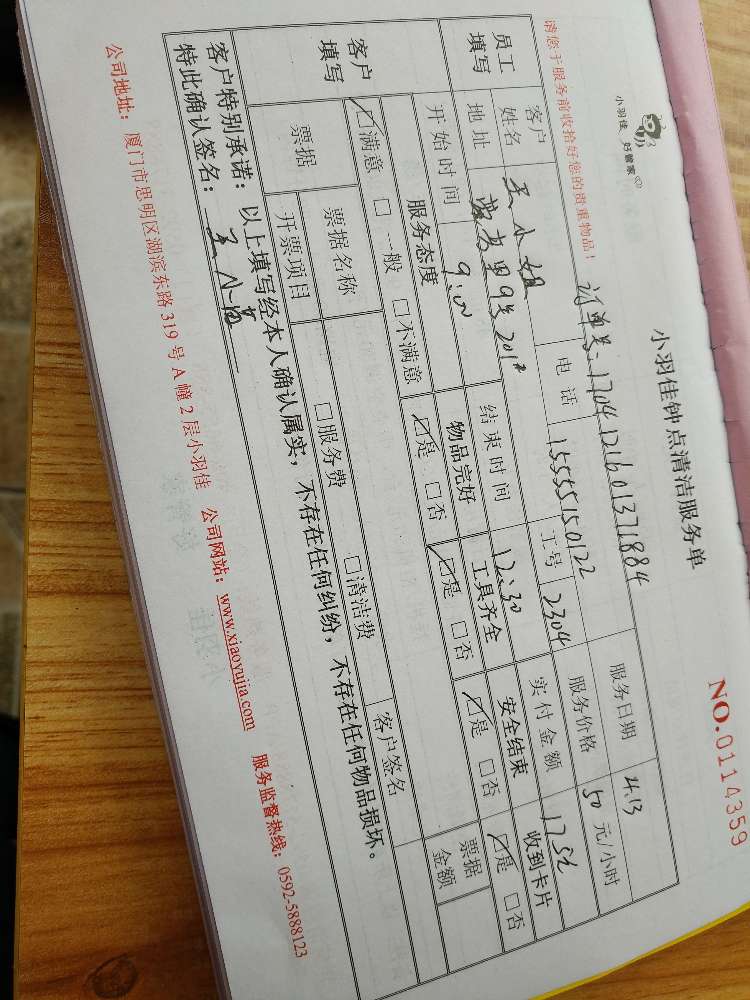 小羽佳 好管家
小羽佳钟点清洁服务单
NO.0114359
请您于服务前收拾好您的贵重物品！ 订单号：1704121601371884
员工填写 客户姓名 王小姐 电话 15555150122 服务日期 4.13
地址 9号201 工号 2304 服务价格 50 元/小时
开始时间 9:00 结束时间 12:30 实付金额 175元
客户填写 服务态度 物品完好 工具齐全 安全结束 收到卡片
☑满意 □一般 □不满意 ☑是 □否 ☑是 □否 ☑是 □否 ☑是 □否
票据 票据名称 □服务费 □清洁费 客户签名 票据金额
开票项目
客户特别承诺：以上填写经本人确认属实，不存在任何纠纷，不存在任何物品损坏。
特此确认签名：王小
公司地址：厦门市思明区湖滨东路319号A幢2层小羽佳 公司网站：www.xiaoyujia.com 服务监督热线：0592-5888123